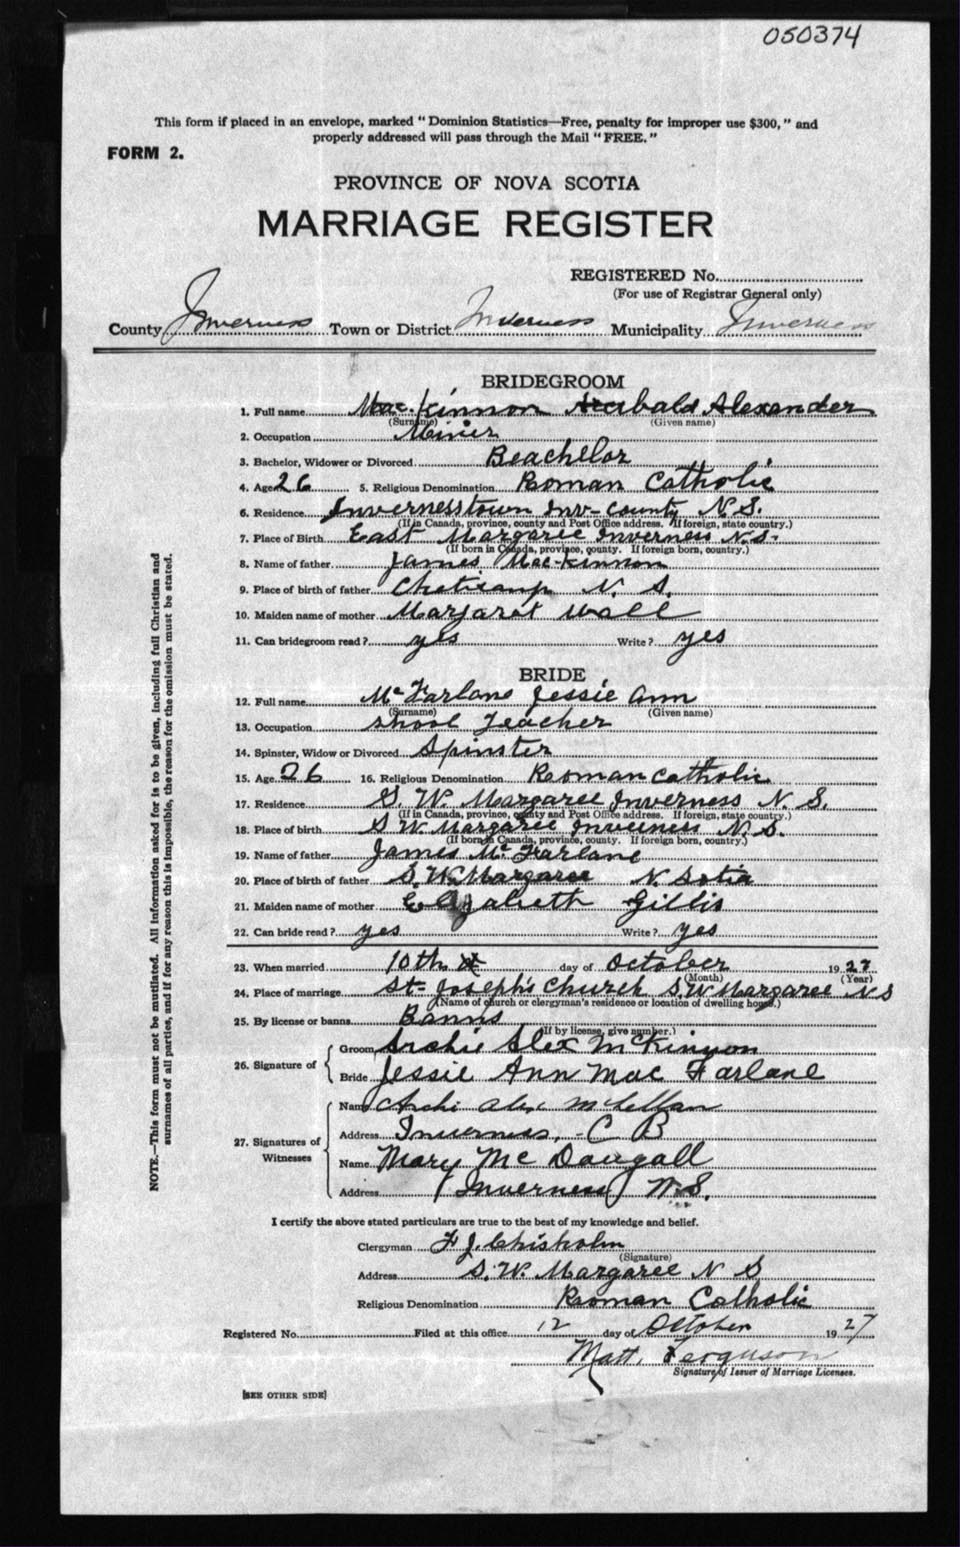 050374
This form if placed in an envelope, marked "Dominion Statistics—Free, penalty for improper use $300," and
properly addressed will pass through the Mail "FREE."
FORM 2.
PROVINCE OF NOVA SCOTIA
MARRIAGE REGISTER
REGISTERED No.
(For use of Registrar General only)
County Inverness Town or District Inverness Municipality Inverness
BRIDEGROOM
1. Full name Mac.Kinnon Archibald Alexander
(Surname) (Given name)
2. Occupation Minier
3. Bachelor, Widower or Divorced Beachellor
4. Age 26 5. Religious Denomination Roman Catholic
6. Residence Invernesstown Inv-county N.S.
(If in Canada, province, county and Post Office address. If foreign, state country.)
7. Place of Birth East Margaree Inverness N.S.
(If born in Canada, province, county. If foreign born, country.)
8. Name of father James Mac-Kinnon
9. Place of birth of father Cheticamp N. S.
10. Maiden name of mother Margaret Wall
11. Can bridegroom read? yes Write? yes
BRIDE
12. Full name McFarlane Jessie Ann
(Surname) (Given name)
13. Occupation Shool Teacher
14. Spinster, Widow or Divorced Spinster
15. Age 26 16. Religious Denomination Roman Catholic
17. Residence S. W. Margaree Inverness N. S.
(If in Canada, province, county and Post Office address. If foreign, state country.)
18. Place of birth S W. Margaree Inverness N. S.
(If born in Canada, province, county. If foreign born, country.)
19. Name of father James McFarlane
20. Place of birth of father S. W. Margaree N. Sotia
21. Maiden name of mother Elizabeth Gillis
22. Can bride read? yes Write? yes
23. When married 10th day of October 1927
(Month) (Year)
24. Place of marriage St- Joseph's Church S.W Margaree N S
(Name of church or clergyman's residence or location of dwelling house.)
25. By license or banns Banns
(If by license, give number.)
26. Signature of
Groom Archie Alex McKinnon
Bride Jessie Ann MacFarlane
27. Signatures of Witnesses
Name Archi Alex McLellan
Address Inverness, C B
Name Mary McDougall
Address Inverness N.S.
I certify the above stated particulars are true to the best of my knowledge and belief.
Clergyman F J. Chisholm
(Signature)
Address S. W. Margaree N S
Religious Denomination Roman Catholic
Registered No. Filed at this office 12 day of October 1927
Matt. Ferguson
Signature of Issuer of Marriage Licenses.
[SEE OTHER SIDE]
NOTE.—This form must not be mutilated. All information asked for is to be given, including full Christian and
surnames of all parties, and if for any reason this is impossible, the reason for the omission must be stated.